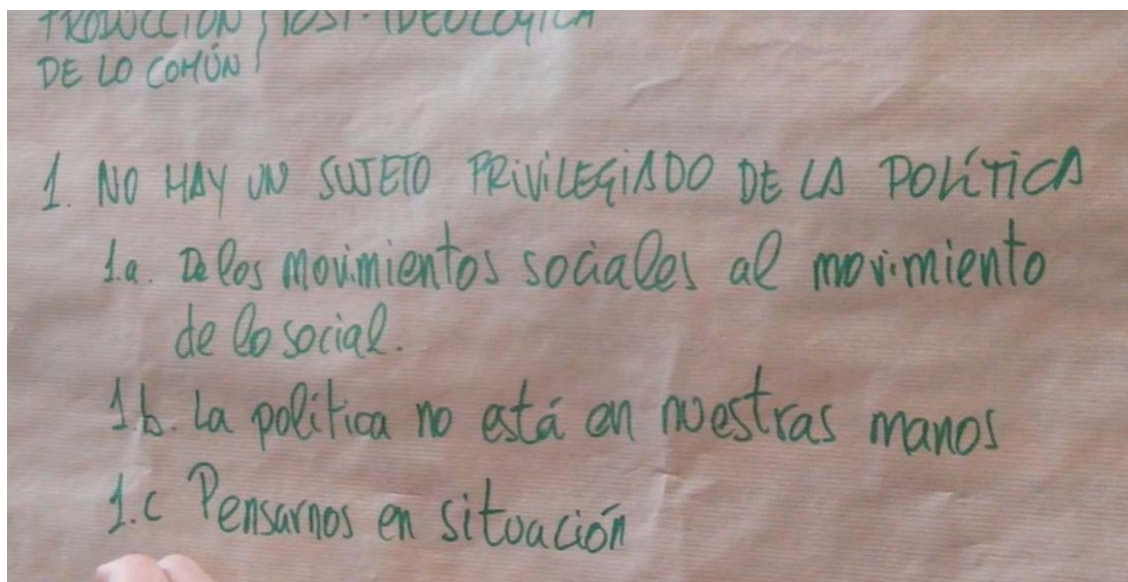 PRODUCCIÓN POST-IDEOLÓGICA
DE LO COMÚN
1. NO HAY UN SUJETO PRIVILEGIADO DE LA POLÍTICA
1.a. De los movimientos sociales al movimiento
de lo social.
1b. La política no está en nuestras manos
1.c Pensarnos en situación